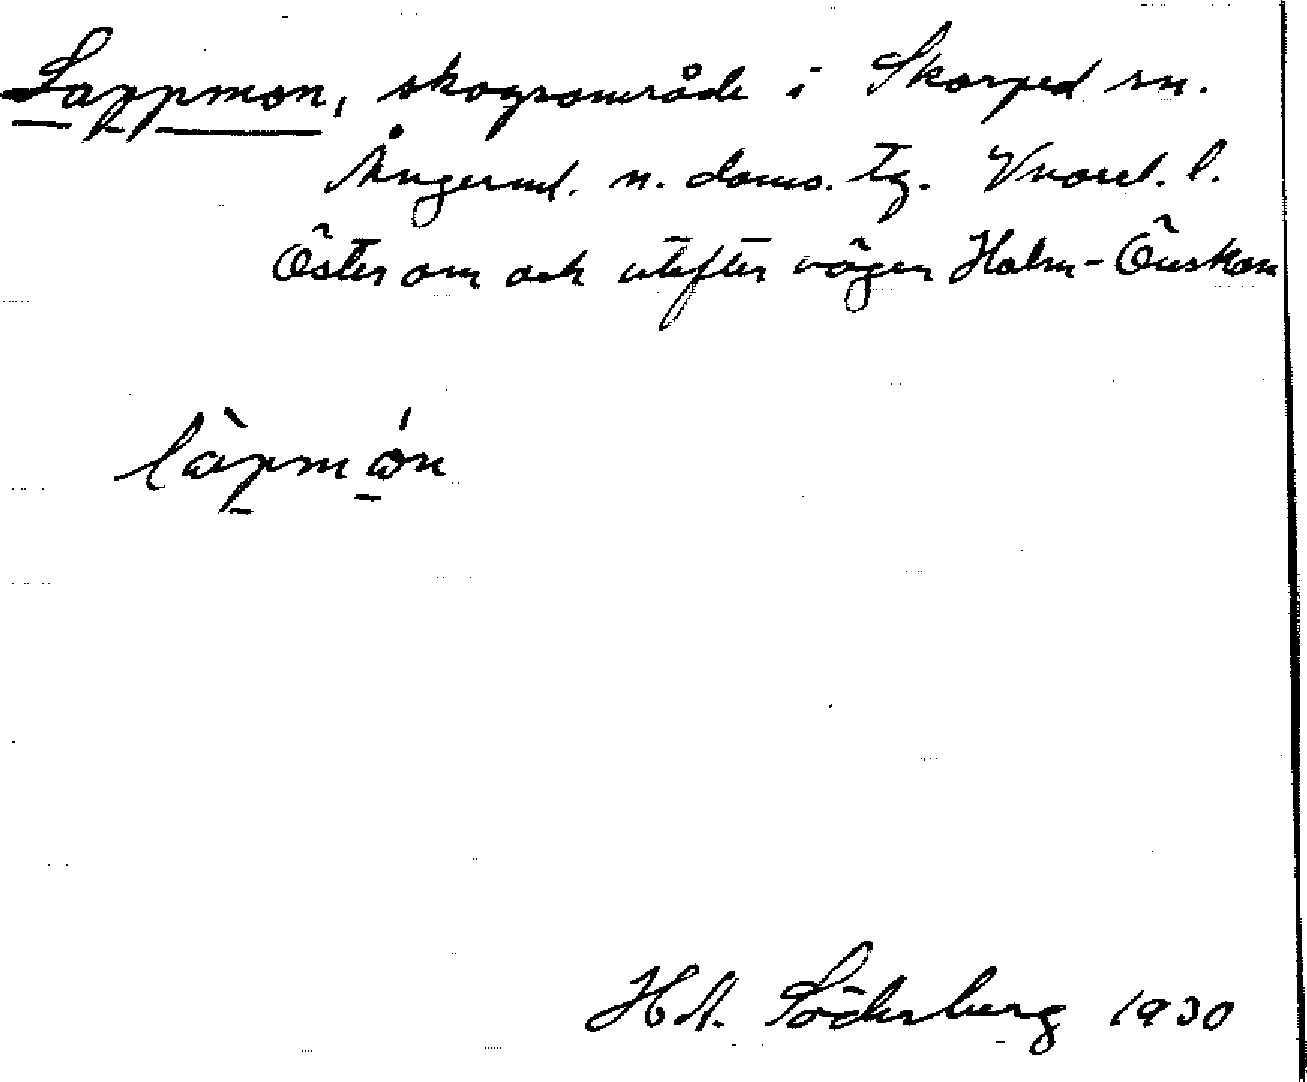 Lappmon, skogsområde i Skorped sn.
Ångerml. n. doms. tg. Vnorrl. l.
Öster om och utefter vägen Holm-Önskan
làpmón
H.A. Söderberg 1930